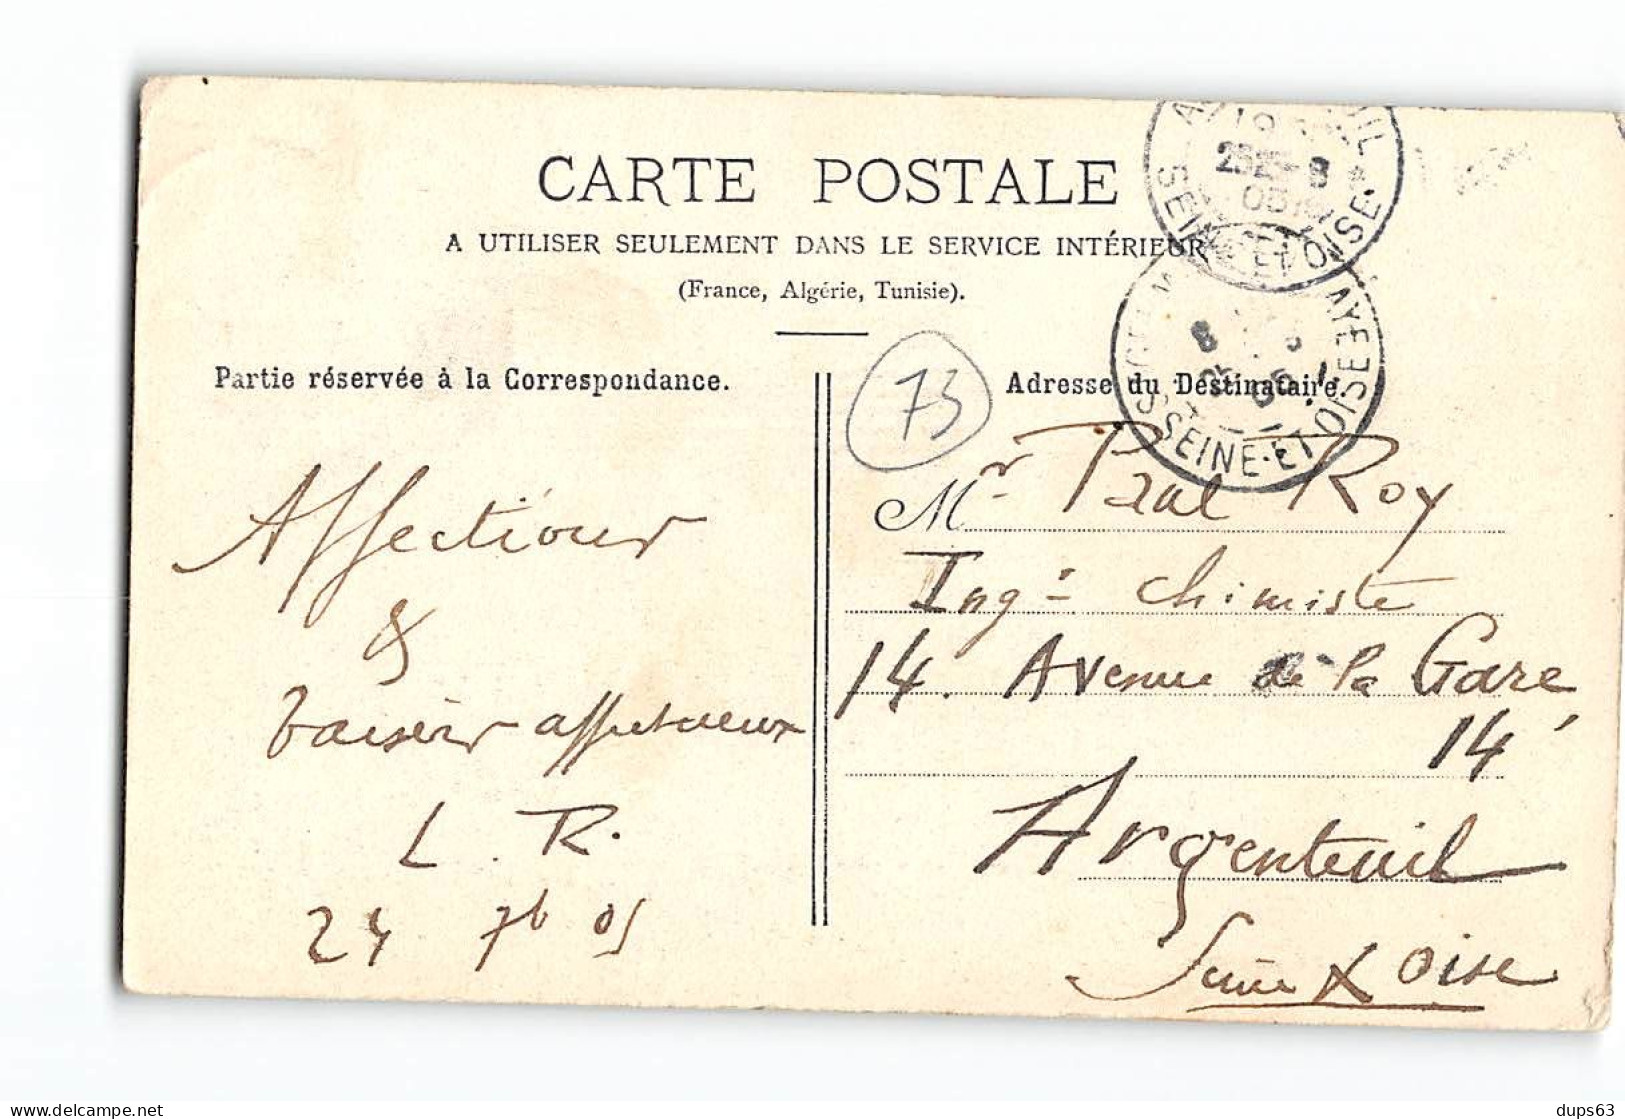 CARTE POSTALE
A UTILISER SEULEMENT DANS LE SERVICE INTÉRIEUR
(France, Algérie, Tunisie).
Partie réservée à la Correspondance.
73
Adresse du Destinataire.
Affectiour
&
baiser affectueux
L. R.
24 7b 05
Mr Paul Roy
Ingr chimiste
14. Avenue de la Gare
14
Argenteuil
Seine & Oise
SEINE ET OISE
SEINE-ET-OISE
delcampe.net
dups63